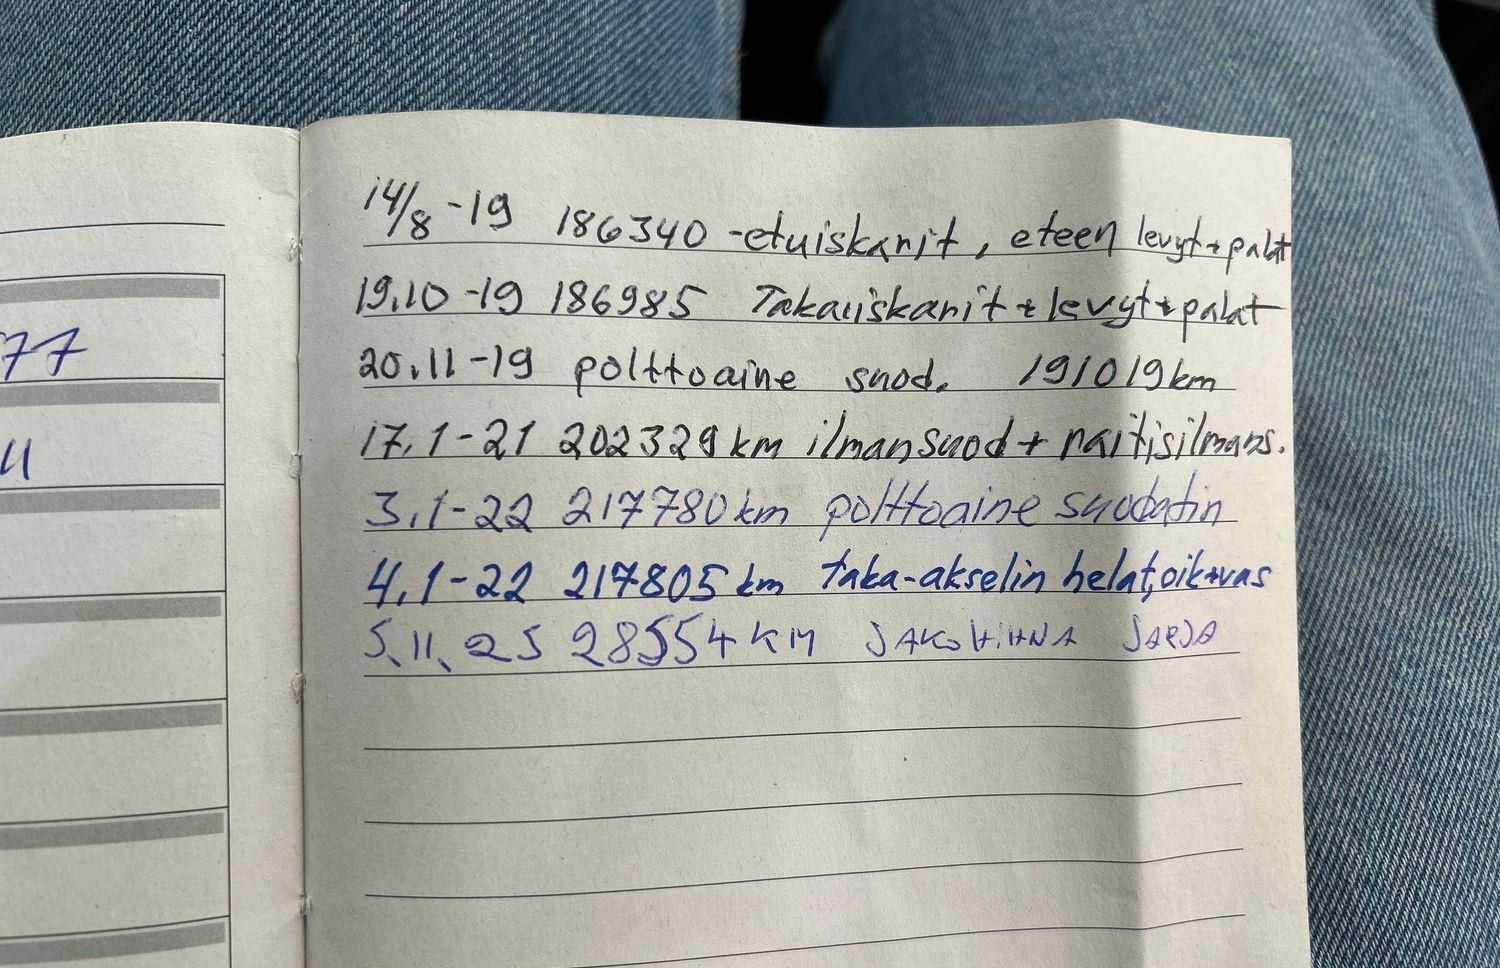 77
14/8 -19 186340 -etuiskarit, eteen levyt+palat
19.10 -19 186985 Takaiskarit+levyt+palat
20.11-19 polttoaine suod. 191019km
17.1-21 202329km ilmansuod+raitisilmans.
3.1-22 217780km polttoaine suodatin
4.1-22 217805km taka-akselin helat,oik+vas
5.11.25 28554 KM JAKOHIHNA SARJA